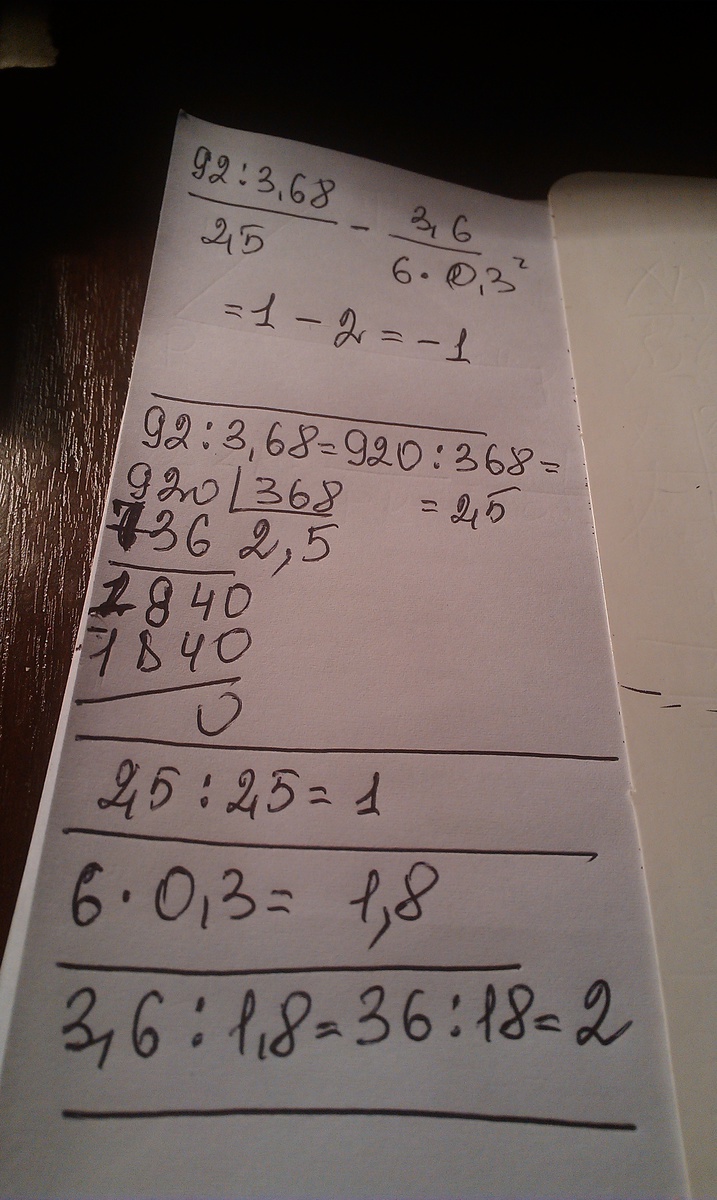 92:3,68 / 2,5 - 3,6 / 6·0,3²
=1-2=-1
92:3,68=920:368=
920 368 =2,5
736 2,5
1840
1840
0
2,5:2,5=1
6·0,3= 1,8
3,6:1,8=36:18=2